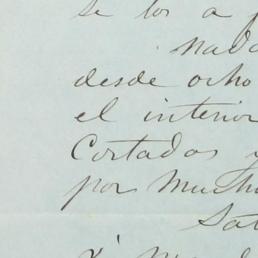 se los a
nada
desde ocho
el interior
Cortadas y
por Mucho